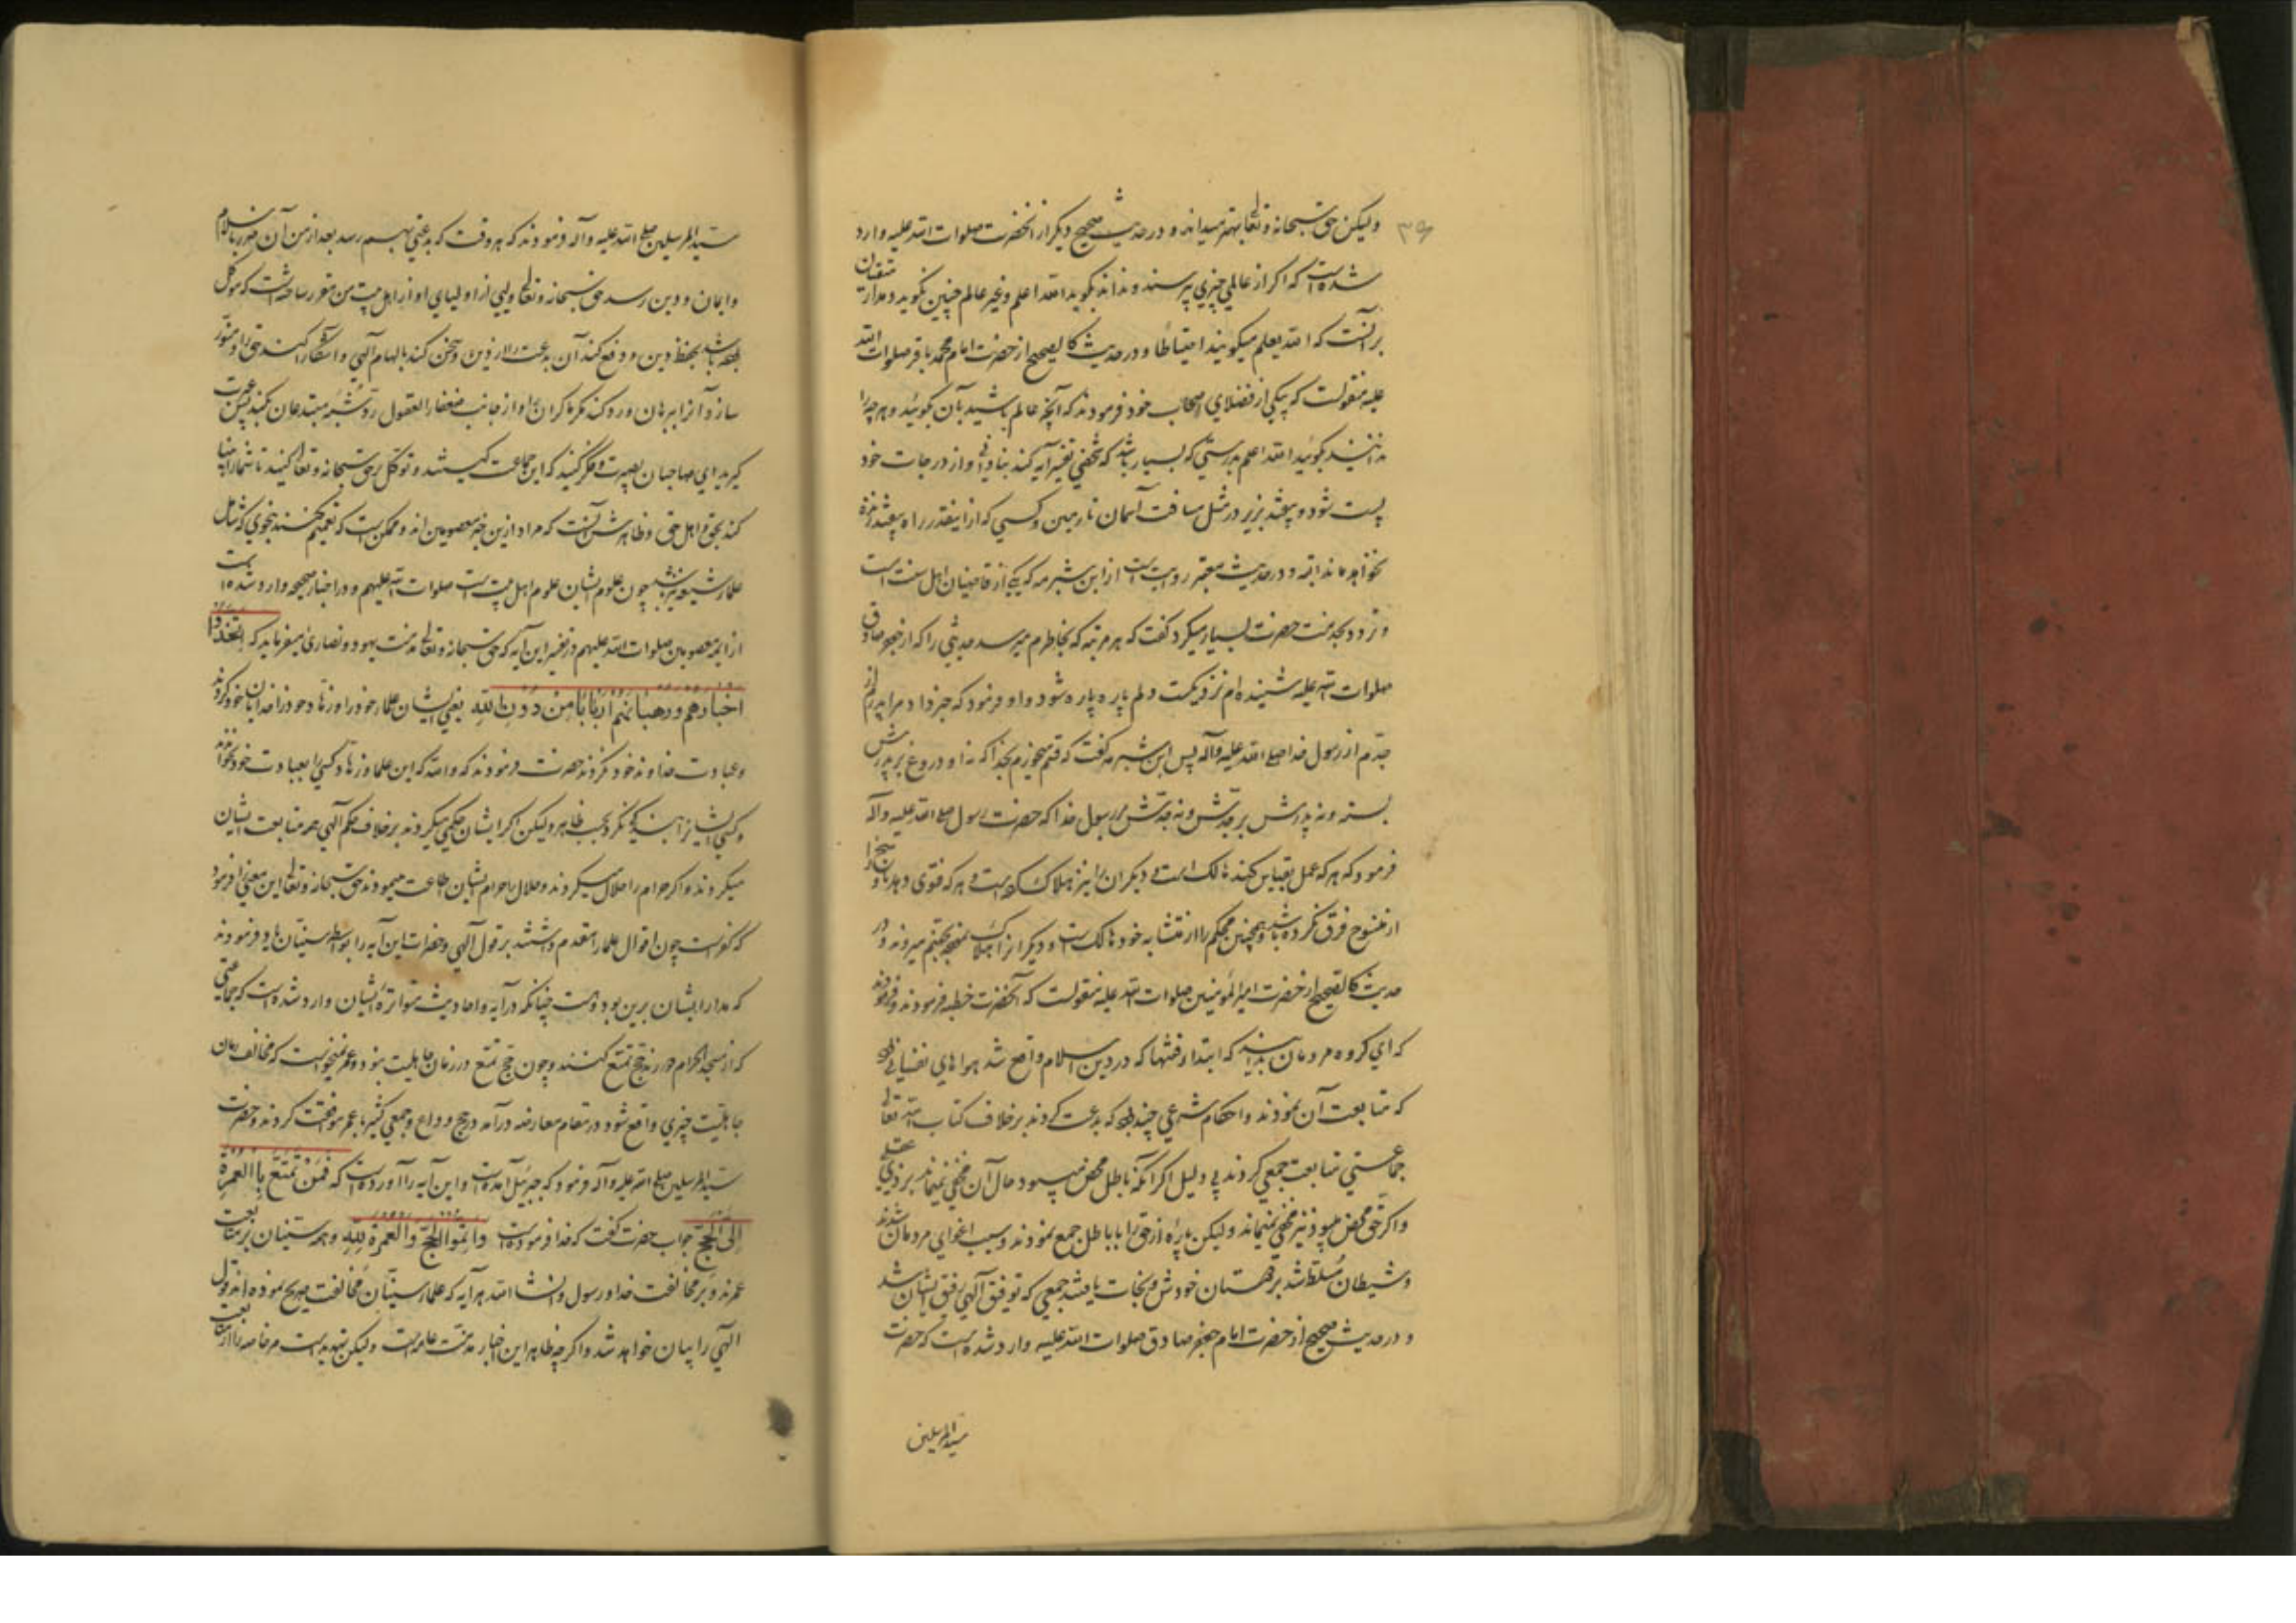 ۳۹
ولیکن حق سبحانه و تعالی بهتر میداند و در حدیث صحیح دیگر از آنحضرت صلوات الله علیه وارد
شده است که اگر از عالمی چیزی پرسند و نداند بگوید الله اعلم و غیر عالم چنین نگوید و مدار متقیان
بر آنست که الله یعلم میگویند احتیاطا و در حدیث کالصحیح از حضرت امام محمد باقر صلوات الله
علیه منقولست که بیکی از فضلای اصحاب خود فرمودند که آنچه عالم باشید بآن بگوئید و هر چه را
ندانید بگوئید الله اعلم بدرستی که بسیار باشد که شخصی تفسیر آیه کند بنادانی و از درجات خود
پست شود و بیفتد بزیر در مثل مسافت آسمان تا زمین و کسی که ازاینقدر راه بیفتد زنده
نخواهد ماند البته و در حدیث معتبر روایت است از ابن شبرمه که یکی از قاضیان اهل سنت است
و تردد بخدمت حضرت بسیار میکرد گفت که هر مرتبه که بخاطرم میرسد حدیثی را که از جعفر صادق
صلوات الله علیه شنیده‌ام نزدیکست دلم پاره پاره شود و او فرمود که خبر داد مرا پدرم از
جدم از رسول خدا صلی الله علیه و آله پس ابن شبرمه گفت که قسم میخورم بخدا که نه او دروغ بر پدرش
بسته و نه پدرش بر جدش و نه جدش بر رسول خدا که حضرت رسول صلی الله علیه و آله
فرمود که هر که عمل بقیاس کند هالک است و دیگران را نیز هلاک کرده است و هر که فتوی دهد و ناسخ را
از منسوخ فرق نکرده باشد و همچنین محکم را از متشابه خود هالک است و دیگرانرا هلاک کرده بجهنم میروند و در
حدیث کالصحیح از حضرت امیر المؤمنین صلوات الله علیه منقولست که آنحضرت خطبه فرمودند و فرمودند
که ای گروه مردمان بدانید که ابتدای فتنها که در دین اسلام واقع شد هواهای نفسانی بود
که متابعت آن نمودند و احکام شرعی چند بود که بدعت کردند بر خلاف کتاب الله تعالی
جماعتی متابعت جمعی کردند بی دلیل اگر آنکه باطل محض میبود حال آن مخفی نمیماند بر ذی عقلی
و اگر حق محض میبود نیز مخفی نمیماند ولیکن پاره از حق را با باطل جمع نمودند و سبب اغوای مردمان شدند
و شیطان مسلط شد بر دوستان خودش و نجات یافتند جمعی که توفیق آلهی رفیق ایشان شد
و در حدیث صحیح از حضرت امام جعفر صادق صلوات الله علیه وارد شده است که حضرت
سید المرسلین
سید المرسلین صلی الله علیه و آله فرمودند که هر وقت که بدعتی بهم رسد بعد از من که آن ضرر باسلام
و ایمان و دین رسد حق سبحانه و تعالی ولیی از اولیای او از اهل بیت من مقرر ساخته است که موکل
باشد بحفظ دین و دفع کند آن بدعت را از دین و سخن کند بالهام آلهی و آشکارا کند حق را و منور
سازد آنرا ببرهان و رد کند مکر ماکران را و از جانب ضعفاء العقول رد شر مبتدعان بکند پس عبرت
گیرید ای صاحبان بصیرت و فکر کنید که این جماعت کیستند و توکل بر حق سبحانه و تعالی کنید تا شما را
کند بحق و اهل حق و ظاهرش آنست که مراد ازین خبر معصومین‌اند و ممکن است که تعمیم کنند بنحوی که شامل
علماء شیعه نیز باشد چون علوم ایشان علوم اهل بیت است صلوات الله علیهم و در اخبار صحیحه وارد شده است
از ائمه معصومین صلوات الله علیهم در تفسیر این آیه که حق سبحانه و تعالی مذمت یهود و نصاری میفرماید که اتخذوا
احبارهم و رهبانهم اربابا من دون الله یعنی ایشان علماء خود را و زهاد خود را خدایان خود کردند
و عبادت خداوند خود نکردند حضرت فرمودند که والله که این علما و زهاد کسی را بعبادت خود نخواندند
و کسی ایشانرا بندگی نکرد بحسب ظاهر ولیکن اگر ایشان حکمی میکردند بر خلاف حکم آلهی همه متابعت ایشان
میکردند و اگر حرام را حلال میکردند و حلال را حرام ایشان اطاعت مینمودند حق سبحانه و تعالی این معنی را فرمود
که کفر است چون اقوال علما را مقدم داشتند بر قول آلهی و حضرات این آیه را بواسطه سنیان یاد فرمودند
که مدار ایشان برین بود و هست چنانکه در آیه و احادیث متواتره ایشان وارد شده است که جماعتی
که از مسجد الحرام دورند حج تمتع کنند و چون حج تمتع در زمان جاهلیت نبود و عمر نمیخواست که مخالف زمان
جاهلیت چیزی واقع شود در مقام معارضه درآمد در حج وداع و جمعی کثیر با عمر موافقت کردند و حضرت
سید المرسلین صلی الله علیه و آله فرمود که جبرئیل آمده است و این آیه را آورده است که فمن تمتع بالعمرة
الی الحج جواب حضرت گفت که خدا فرموده است و اتموا الحج و العمرة لله و همه سنیان بر متابعت
عمرند و بر مخالفت خدا و رسول و انشاء الله هر آیه که علماء سنیان مخالفت صریح نموده‌اند قول
آلهی را بیان خواهد شد و اگر چه ظاهر این اخبار مذمت عامه است ولیکن تهدید است مر خاصه را از متابعت